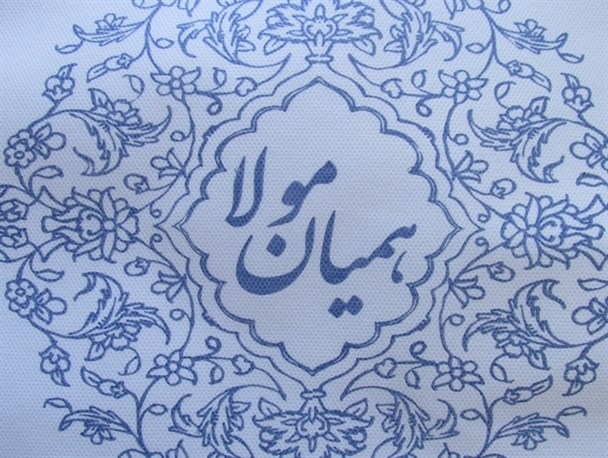 همیان مولا